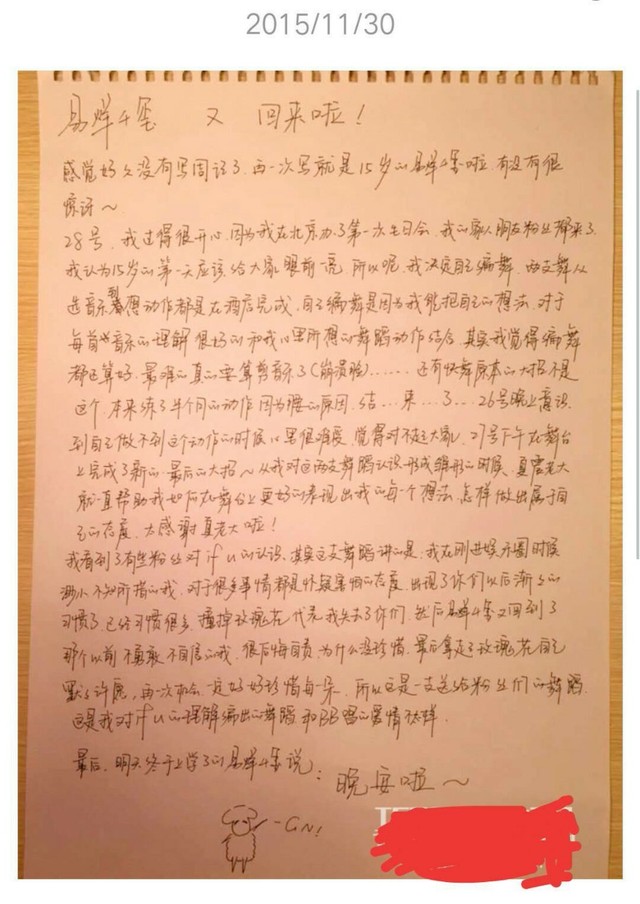 2015/11/30
易烊千玺 又 回来啦!
感觉好久没有写周记了,再一次写就是15岁的易烊千玺啦,有没有很
惊讶~
28号,我过得很开心,因为我在北京办了第一次生日会,我的家人朋友粉丝都来了
我认为15岁的第一天应该给大家眼前一亮,所以呢,我决定自己编舞,两支舞从
选音乐到想动作都是在酒店完成,自己编舞是因为我能把自己的想法,对于
每首音乐的理解很好的和我心里所想的舞蹈动作结合,其实我觉得编舞
都还算好,最难的真的要算剪音乐了(崩溃脸)……还有快舞原本的大招不是
这个,本来练了半个月的动作因为腰的原因,结…束…了…26号晚上意识
到自己做不到这个动作的时候心里很难受,觉得对不起大家,27号下午在舞台
上完成了新的,最后的大招~从我对这两支舞蹈认识形成雏形的时候,夏雷老大
就一直帮助我如何在舞台上更好的表现出我的每一个想法,怎样做出属于自
己的态度,太感谢夏老大啦!
我看到了有些粉丝对if u的认识,其实这支舞蹈讲的是,我在刚进娱乐圈时候
渺小不知所措的我,对于很多事情都是怀疑害怕的态度,出现了你们以后渐渐的
习惯了已经习惯很多,撞掉玫瑰花代表我失去了你们,然后易烊千玺又回到了
那个以前不勇敢不自信的我,很后悔自责,为什么没珍惜,最后拿走了玫瑰花自己
默默许愿,再一次机会一定好好珍惜每一朵,所以这是一支送给粉丝们的舞蹈
这是我对if u的理解编出的舞蹈和BB唱的爱情不一样.
最后,明天终于上学了的易烊千玺说: 晚安啦~
-GN!